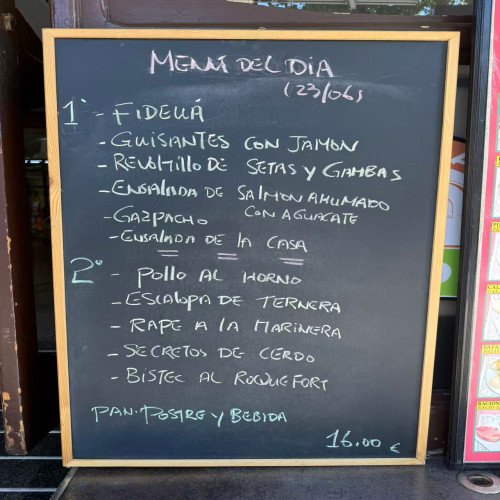 MENÚ DEL DIA
(23/06)
1º - FIDEUÁ
- GUISANTES CON JAMON
- REVOLTILLO DE SETAS Y GAMBAS
- ENSALADA DE SALMON AHUMADO
CON AGUACATE
- GAZPACHO
- ENSALADA DE LA CASA
2º - POLLO AL HORNO
- ESCALOPA DE TERNERA
- RAPE A LA MARINERA
- SECRETOS DE CERDO
- BISTEC AL ROQUEFORT
PAN. POSTRE Y BEBIDA
16.00 €